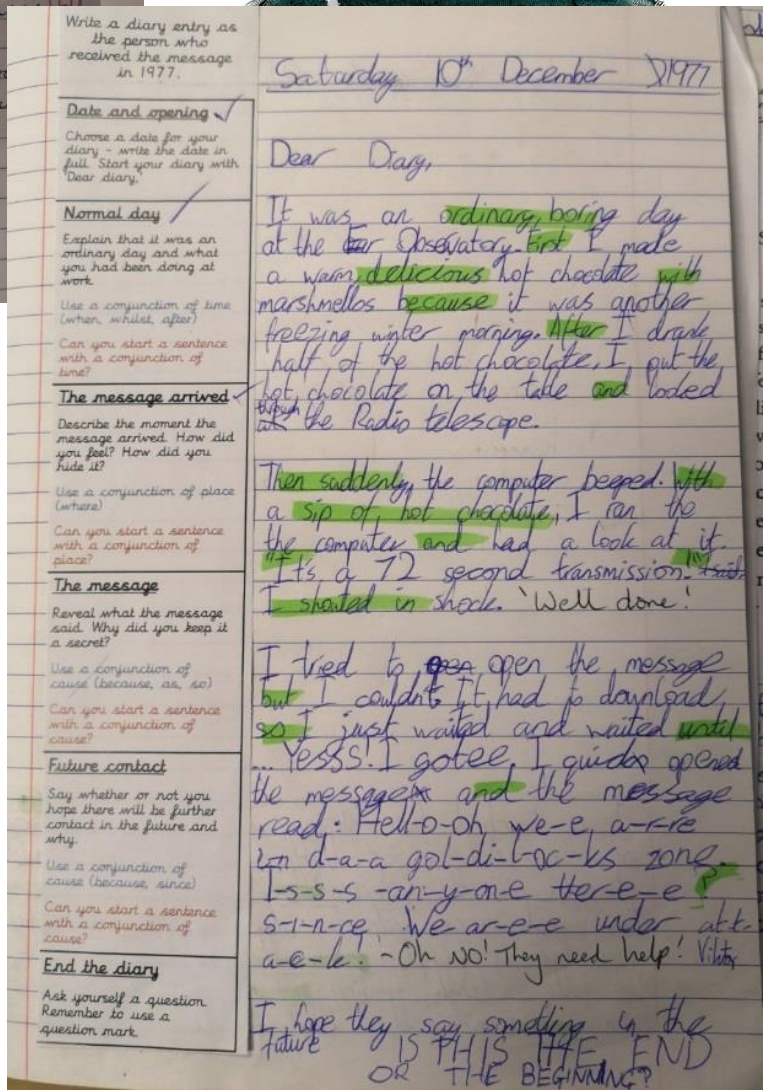 Write a diary entry as
the person who
received the message
in 1977.
Date and opening
Choose a date for your
diary - write the date in
full. Start your diary with
'Dear diary,'
Normal day
Explain that it was an
ordinary day and what
you had been doing at
work.
Use a conjunction of time
(when, whilst, after)
Can you start a sentence
with a conjunction of
time?
The message arrived
Describe the moment the
message arrived. How did
you feel? How did you
hide it?
Use a conjunction of place
(where)
Can you start a sentence
with a conjunction of
place?
The message
Reveal what the message
said. Why did you keep it
a secret?
Use a conjunction of
cause (because, as, so)
Can you start a sentence
with a conjunction of
cause?
Future contact
Say whether or not you
hope there will be further
contact in the future and
why.
Use a conjunction of
cause (because, since)
Can you start a sentence
with a conjunction of
cause?
End the diary
Ask yourself a question.
Remember to use a
question mark.
Saturday 10th December 1977
Dear Diary,
It was an ordinary, boring day
at the Observatory. First I made
a warm, delicious hot chocolate with
marshmellos because it was another
freezing winter morning. After I drank
half of the hot chocolate, I put the
hot chocolate on the table and looked
through the Radio telescope.
Then suddenly, the computer beeped. With
a sip of hot chocolate, I ran the
the computer and had a look at it.
"It's a 72 second transmission!"
I shouted in shock. 'Well done!
I tried to open the message
but I couldn't. It had to download
so I just waited and waited until
... Yesss! I gotee. I opened
the message and the message
read: Hell-o-oh we-e a-r-re
in d-a-a gol-di-l-oc-ks zone.
I-s-s-s -an-y-on-e ther-e-e ?
s-i-n-ce We ar-e-e under at-t-
a-c-k! - Oh NO! They need help!
I hope they say something in the
future IS THIS THE END
OR THE BEGINNING?